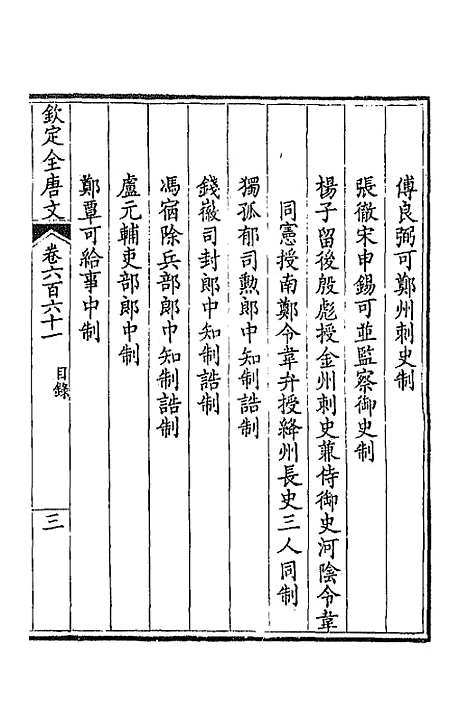 傅良弼可鄭州刺史制
張徹宋申錫可並監察御史制
楊子留後殷彪授金州刺史兼侍御史河陰令韋
同憲授南鄭令韋弁授絳州長史三人同制
獨孤郁司勲郎中知制誥制
錢徽司封郎中知制誥制
馮宿除兵部郎中知制誥制
盧元輔吏部郎中制
鄭覃可給事中制
欽定全唐文 卷六百六十一 目錄 三